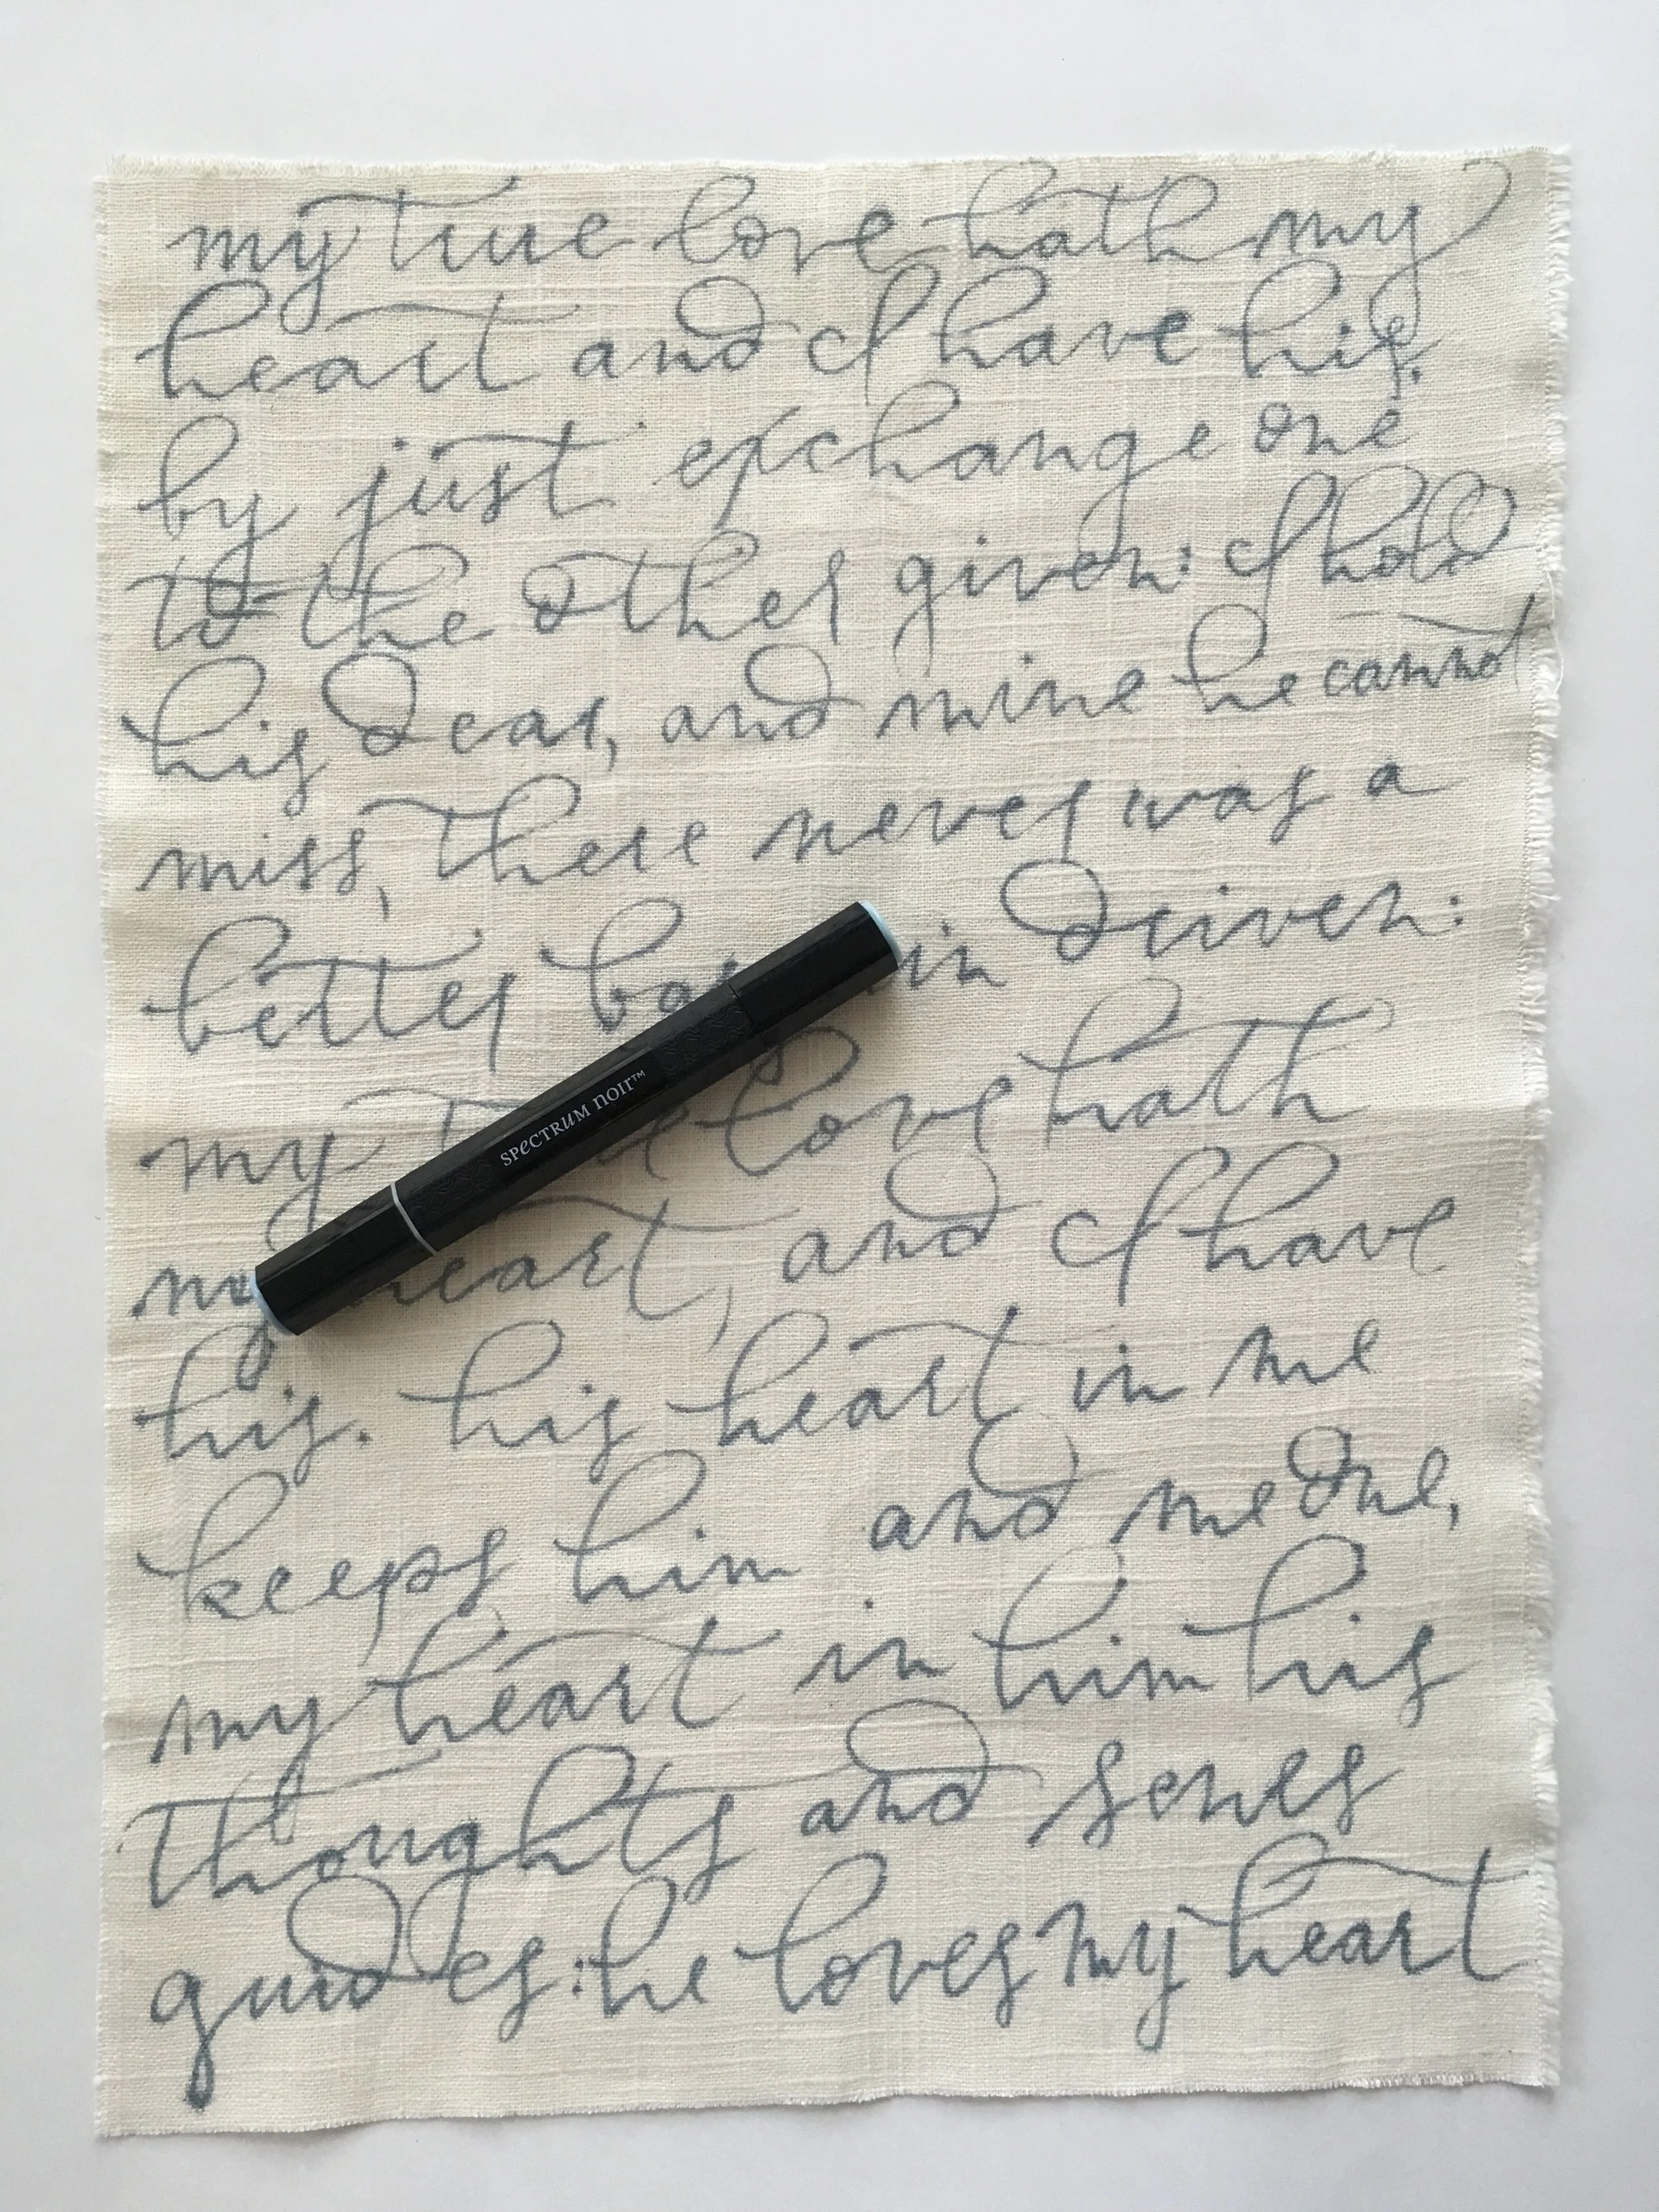 my true love hath my
heart and I have his.
by just exchange one
to the other given: I hold
his dear, and mine he cannot
miss, there never was a
better bargain driven:
my true love hath
my heart, and I have
his. his heart in me
keeps him and me One,
my heart in him his
thoughts and senes
guides: he loves my heart
SPECTRUM NOIR™